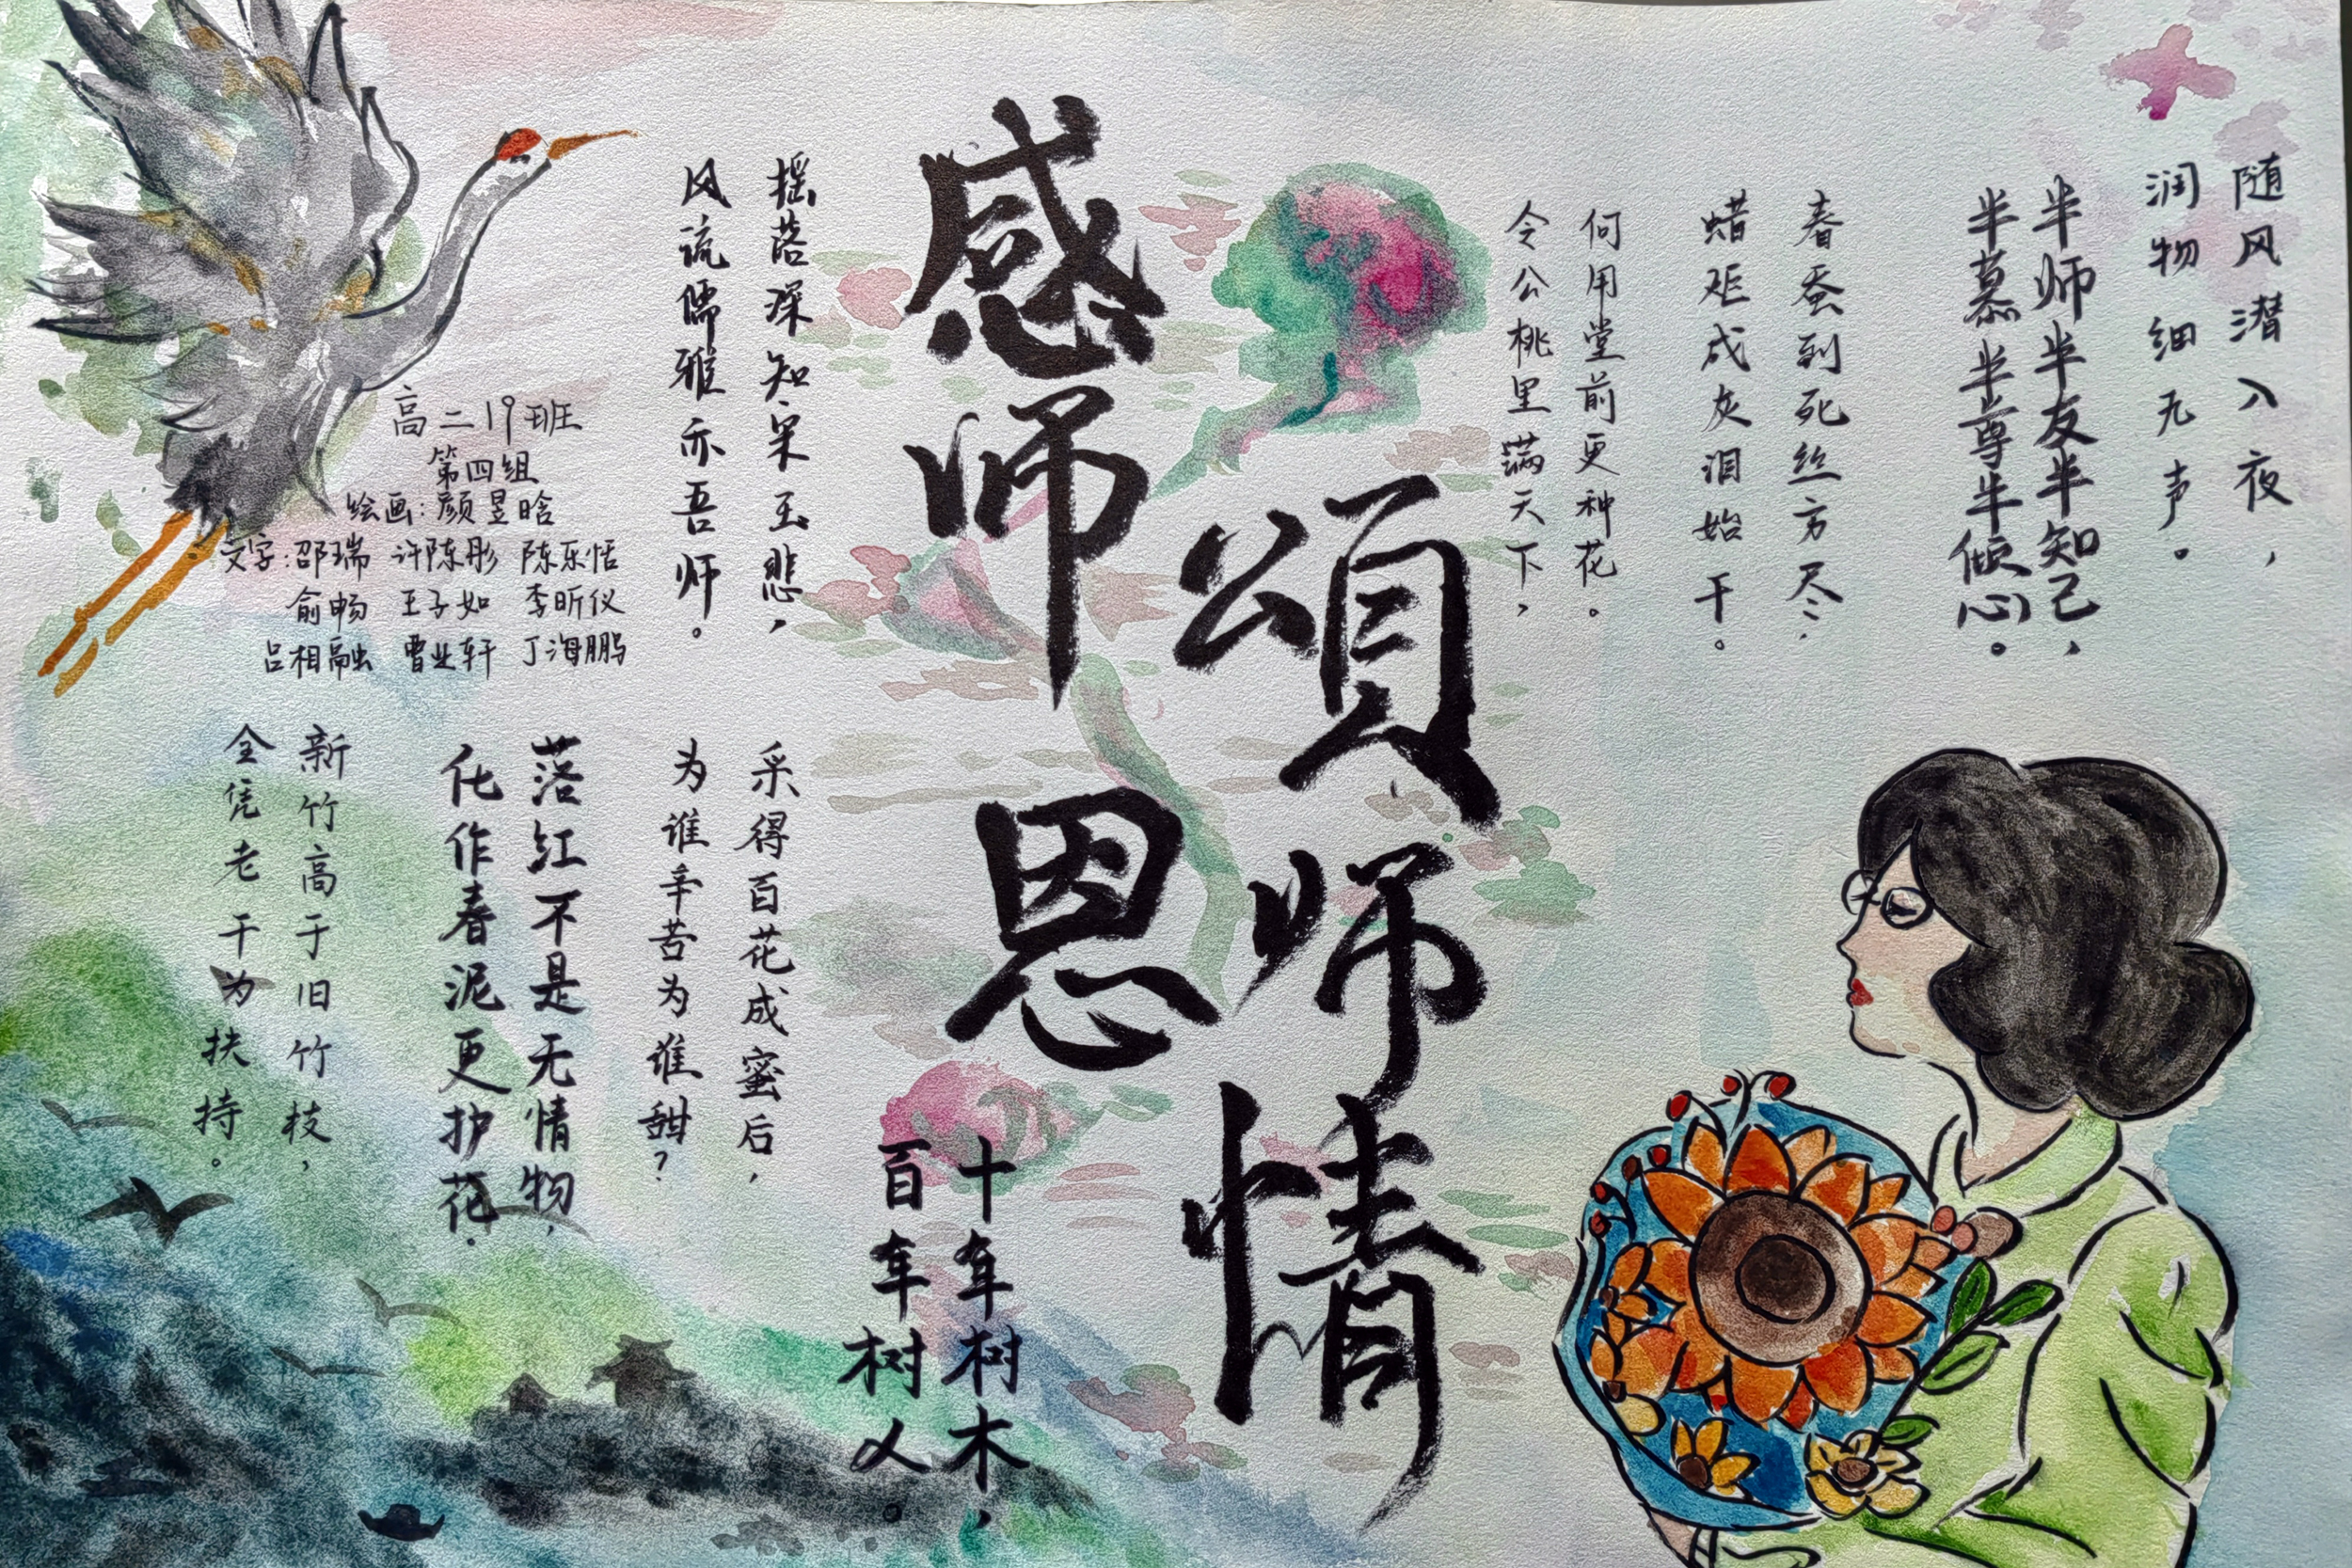 随风潜入夜，
润物细无声。
半师半友半知己，
半慕半尊半倾心。
春蚕到死丝方尽，
蜡炬成灰泪始干。
何用堂前更种花。
令公桃里满天下，
感师恩
頌师情
十年树木，
百年树人。
摇落深知宋玉悲，
风流儒雅亦吾师。
采得百花成蜜后，
为谁辛苦为谁甜？
落红不是无情物，
化作春泥更护花。
新竹高于旧竹枝，
全凭老干为扶持。
高二19班
第四组
绘画：颜昱晗
文字：邵瑞 许陈彤 陈乐恬
俞畅 王子如 李昕仪
吕相融 曹业轩 丁海鹏